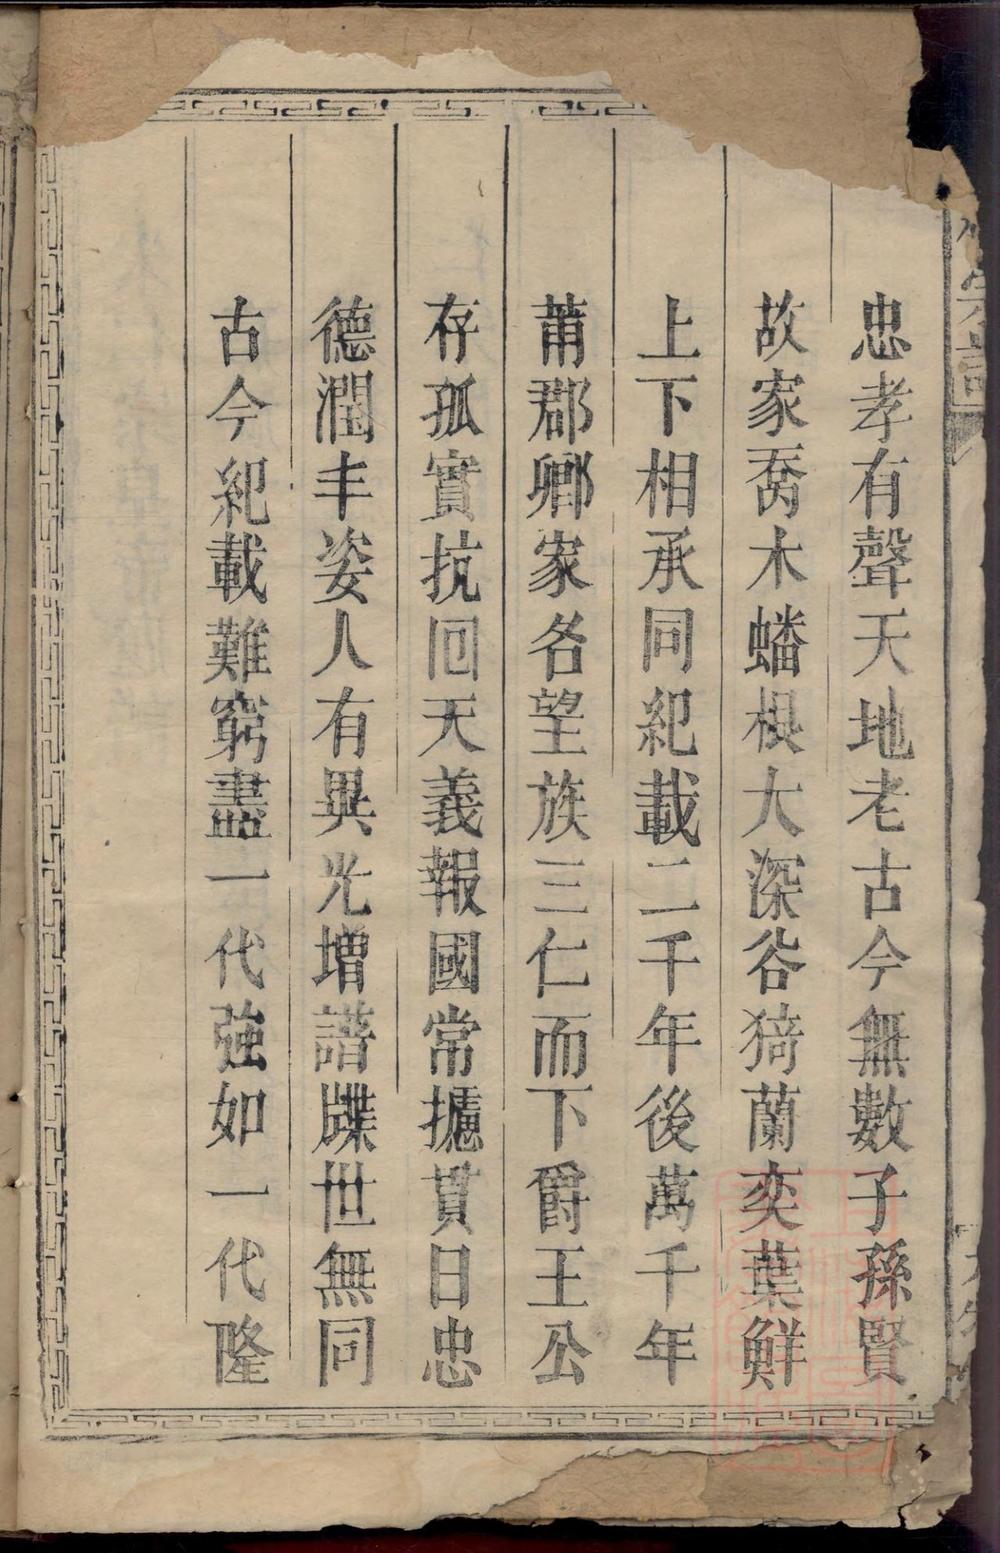 忠孝有聲天地老古今無數子孫賢
故家喬木蟠根大深谷猗蘭奕葉鮮
上下相承同紀載二千年後萬千年
莆郡鄉家各望族三仁而下爵王公
存孤實抗囘天義報國常攄貫日忠
德潤丰姿人有異光增譜牒世無同
古今紀載難窮盡一代強如一代隆
宗譜